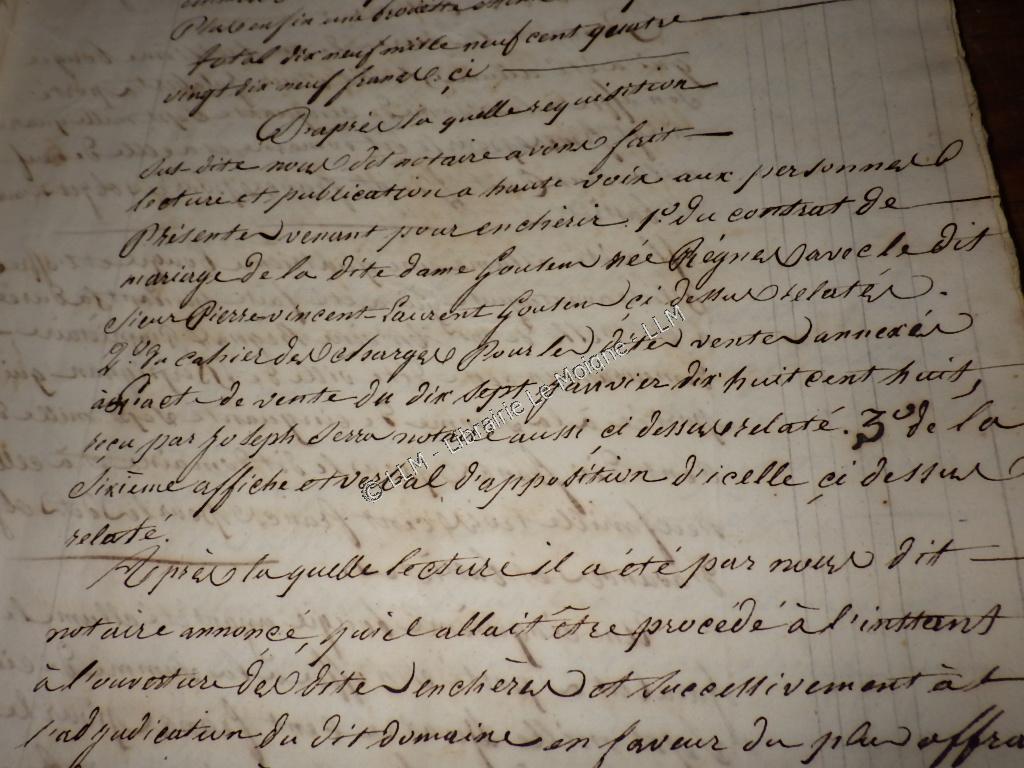 Plus enfin une brouette
total dix neuf mille neuf cent quatre
vingt dix neuf francs. çi
D'après la quelle requisition
sus dite nous dit notaire avons fait
lecture et publication a haute voix aux personnes
Présentes venant pour encherir. 1º du contrat de
mariage de la dite dame née Régnes avec le dit
Sieur Pierre vincent Laurent çi dessus relatés.
2º Du cahier des charges Pour les dites ventes annexés
à l'acte de vente du dix sept Janvier dix huit cent huit,
reçu par Joseph Serra notaire aussi ci dessus relaté. 3º de la
Sixieme affiche et verbal d'apposition d'icelle çi dessus
relaté.
Après la quelle lecture il a été par nous dit
notaire annoncé, qu'il allait être procédé à l'instant
à l'ouverture des dites enchères et successivement à
l'adjudication du dit domaine en faveur du plus offra
© LLM - Librairie Le Moigne - LLM